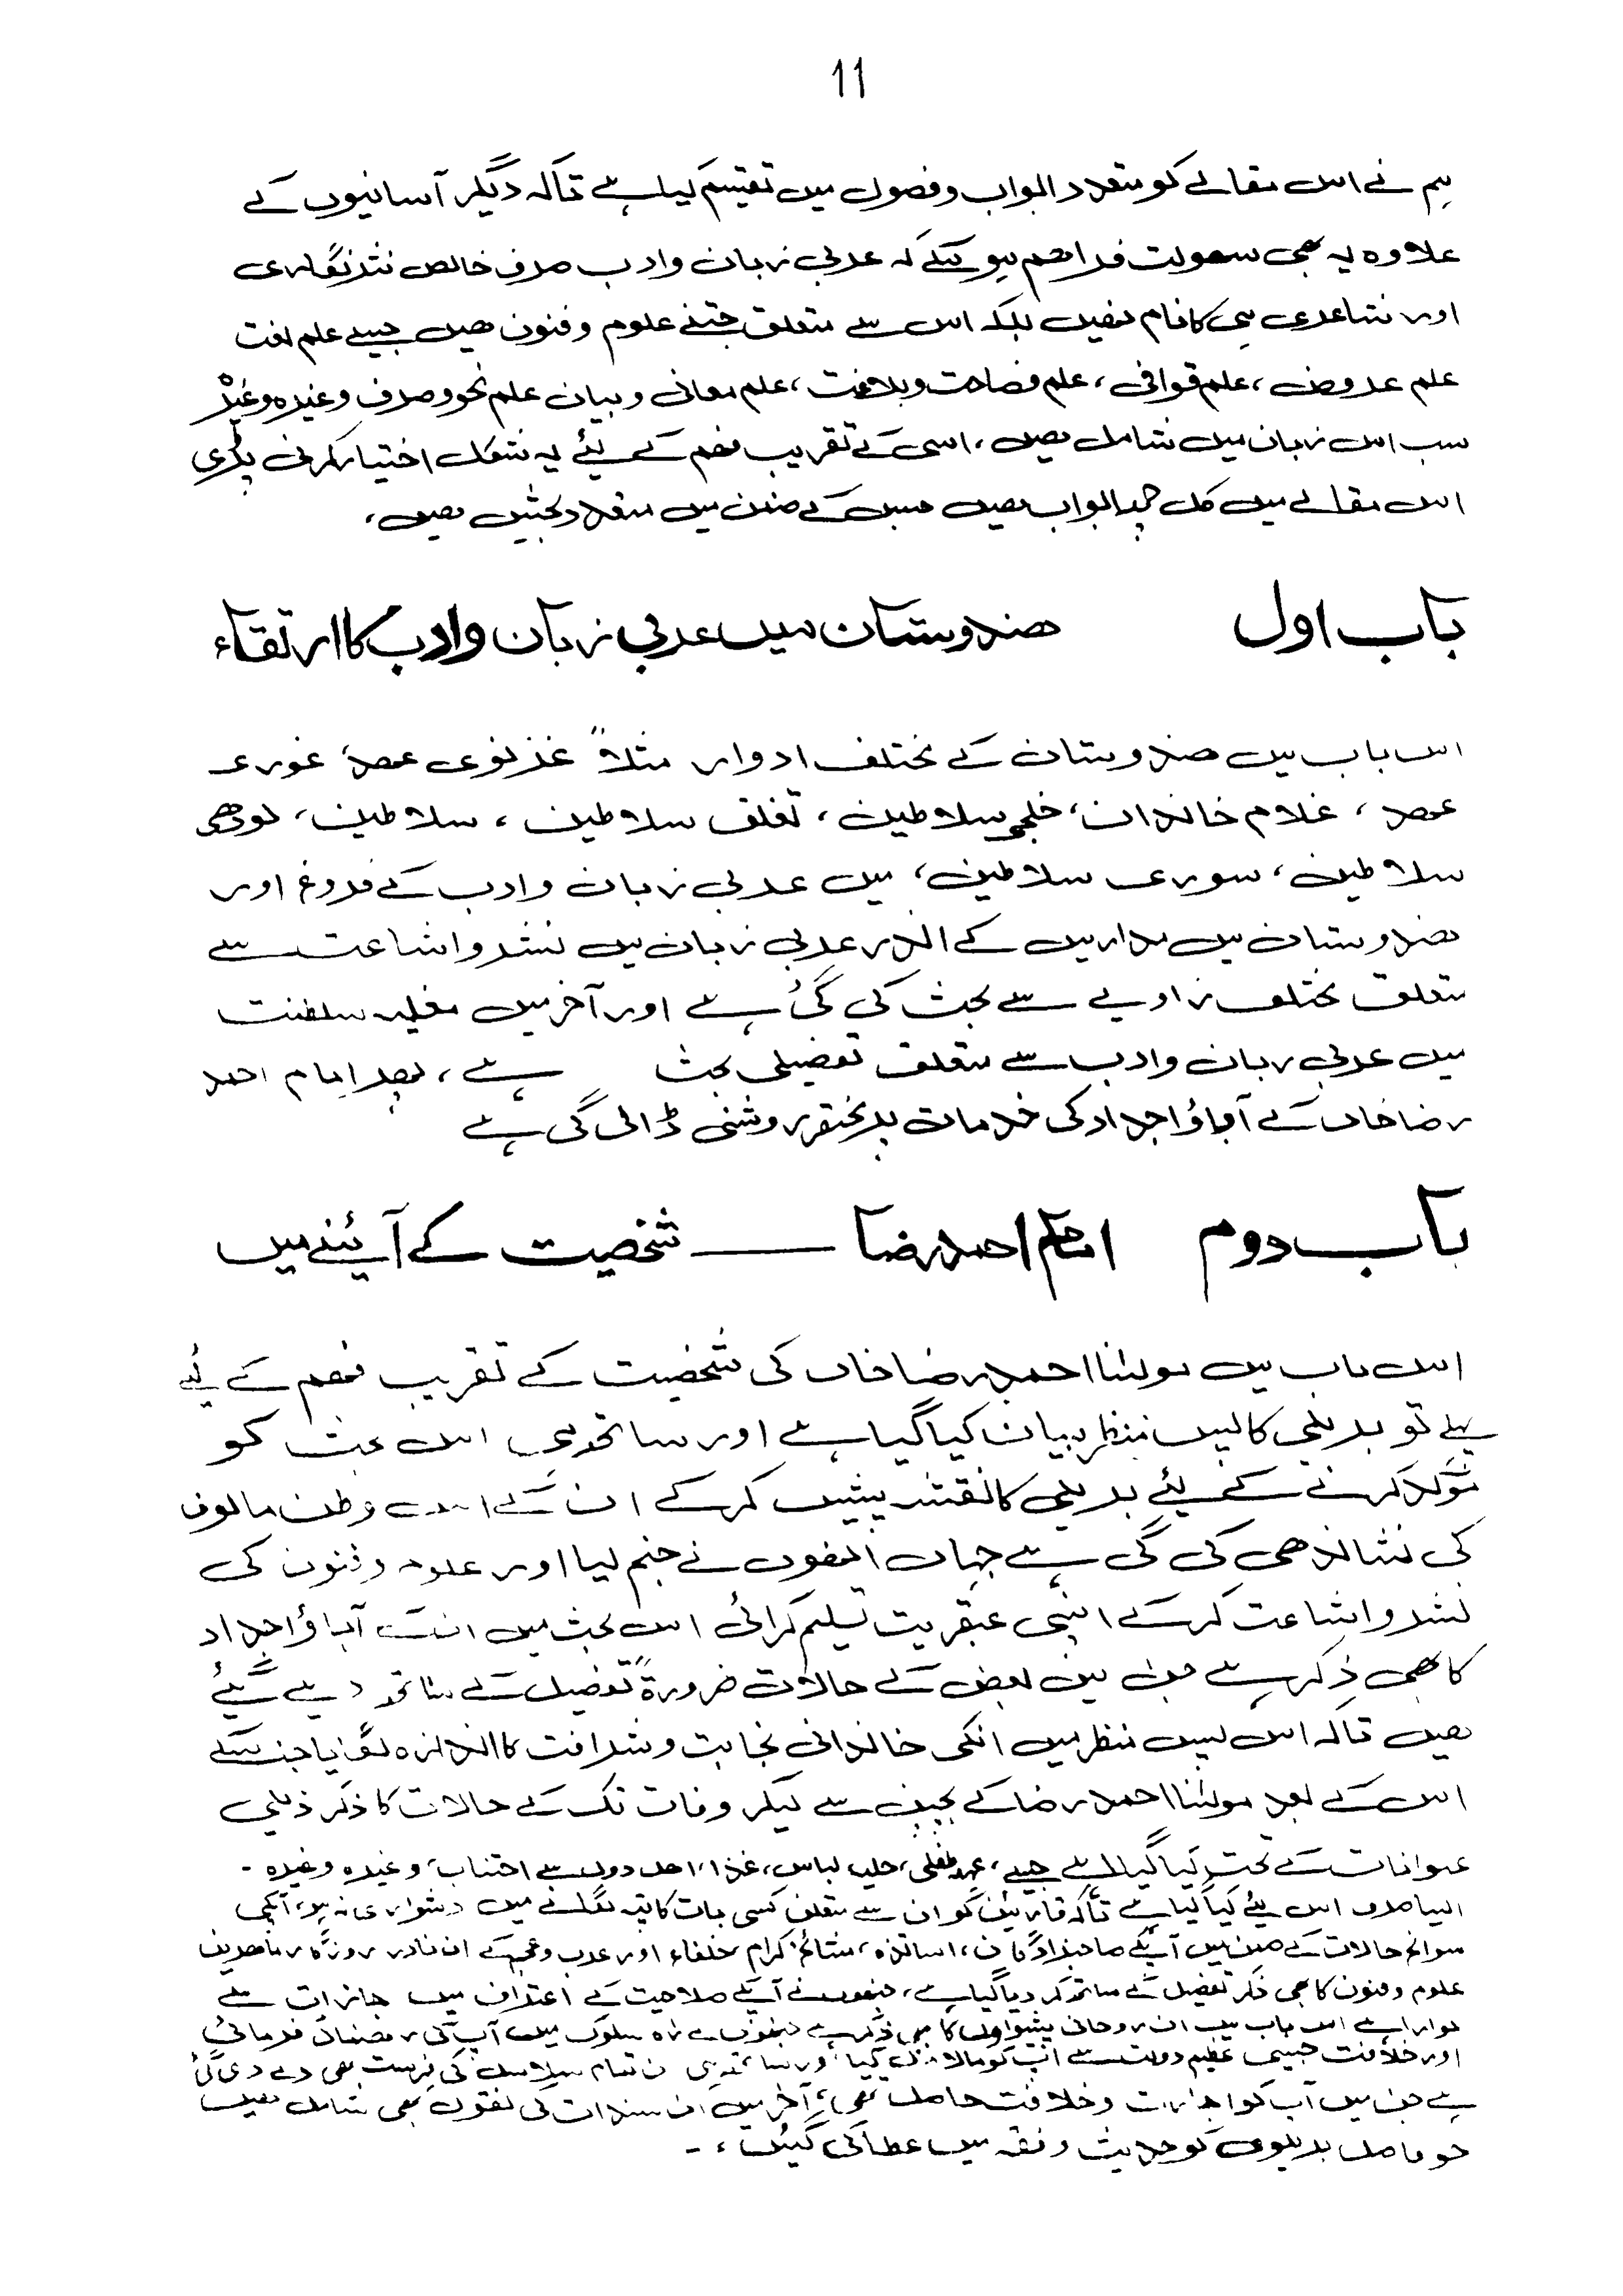 11
ہم نے اس مقالے کو متعدد ابواب و فصول میں تقسیم کیا ہے تاکہ دیگر آسانیوں کے
علاوہ یہ بھی سھولت فراھم ہو سکے کہ عربی زبان وادب صرف خالص نثر نگاری
اور شاعری ہی کا نام نھیں بلکہ اس سے متعلق جتنے علوم و فنون ھیں جیسے علم لغت
علم عروض ، علم قوافی ، علم فصاحت و بلاغت ، علم معانی و بیان علم نحو و صرف وغیرہ وغیرہ
سب اس زبان میں شامل ھیں ، اسی کے تقریب فھم کے لیئے یہ شکل اختیار کرنی پڑی
اس مقالے میں کل چھ ابواب ھیں جس کے ضمن میں متعدد بحثیں ھیں ،
باب اول ھندوستان میں عربی زبان وادب کا ارتقاء
اس باب میں ھندوستان کے مختلف ادوار مثلاً غزنوی عھد، غوری
عھد ، غلام خاندان ، خلجی سلاطین ، تغلق سلاطین ، سلاطین ، لودھی
سلاطین ، سوری سلاطین ، میں عربی زبان وادب کے فروغ اور
ھندوستان میں مدارس کے اندر عربی زبان میں نشر و اشاعت سے
متعلق مختلف زاویے سے بحث کی گئ ہے اور آخر میں مغلیہ سلطنت
میں عربی زبان وادب سے متعلق تفصیلی بحث ہے ، پھر امام احمد
رضا خاں کے آباؤ اجداد کی خدمات پر مختصر روشنی ڈالی گی ہے
باب دوم امام احمد رضا ــــ شخصیت کے آیئنے میں
اس باب میں مولٰنا احمد رضا خاں کی شخصیت کے تقریب فھم کے لیٔے
پہلے تو بریلی کا پس منظر بیان کیا گیا ہے اور ساتھ ھی اس بحث کو
مؤکد کرنے کے لیئے بریلی کا نقشہ پیش کرکے ان کے وطن مالوف
کی نشاندھی کی گی ہے جہاں انھوں نے جنم لیا اور علوم و فنون کی
نشر و اشاعت کرکے اپنی عبقریت تسلیم کرائی اس بحث میں انکے آباؤ اجداد
کا بھی ذکر ہے جن میں بعض کے حالات ضرورۃً تفصیل کے ساتھ دیے گیئے
ھیں تاکہ اس پس منظر میں انکی خاندانی نجابت و شرافت کا اندازہ لگایا جا سکے
اس کے بعد مولٰنا احمد رضا کے بچپن سے لیکر وفات تک کے حالات کا ذکر ذیلی
عنوانات کے تحت کیا گیا ہے جیسے ، عہد طفلی ، حلیہ لباس ، غذا ، اھل دول سے اجتناب ، وغیرہ وغیرہ ۔
ایسا صرف اس لیئے کیا گیا ہے تاکہ قارئین کو ان سے متعلق کسی بات کا پتہ لگانے میں دشواری نہ ہو ، آپکی
سوانح حالات کے ضمن میں آپکے صاحبزادگان ، اساتذہ ، مشائخ کرام خلفاء اور عرب و عجم کے ان نادر روزگار ماھرین
علوم و فنون کا بھی ذکر تفصیل کے ساتھ کر دیا گیا ہے ، جنھوں نے آپکے صلاحیت کے اعتراف میں سے
نوازا ہے اس باب میں ان روحانی پیشواؤں کا بھی ذکر ہے جنھوں نے راہ سلوک میں آپ کی رھنمائی فرمائی
اور خلافت جیسی عظیم دولت سے آپ کو مالا مال کیا اور ساتھ ہی ان تمام سلاسل کی فہرست بھی دے دی گئ
ہے جن میں آپ کو اجازت و خلافت حاصل تھی ، آخر میں ان سندات کی نقول بھی شامل ھیں
جو فاضل بریلوی کو حدیث و فقہ میں عطا کی گیئں ، ۔